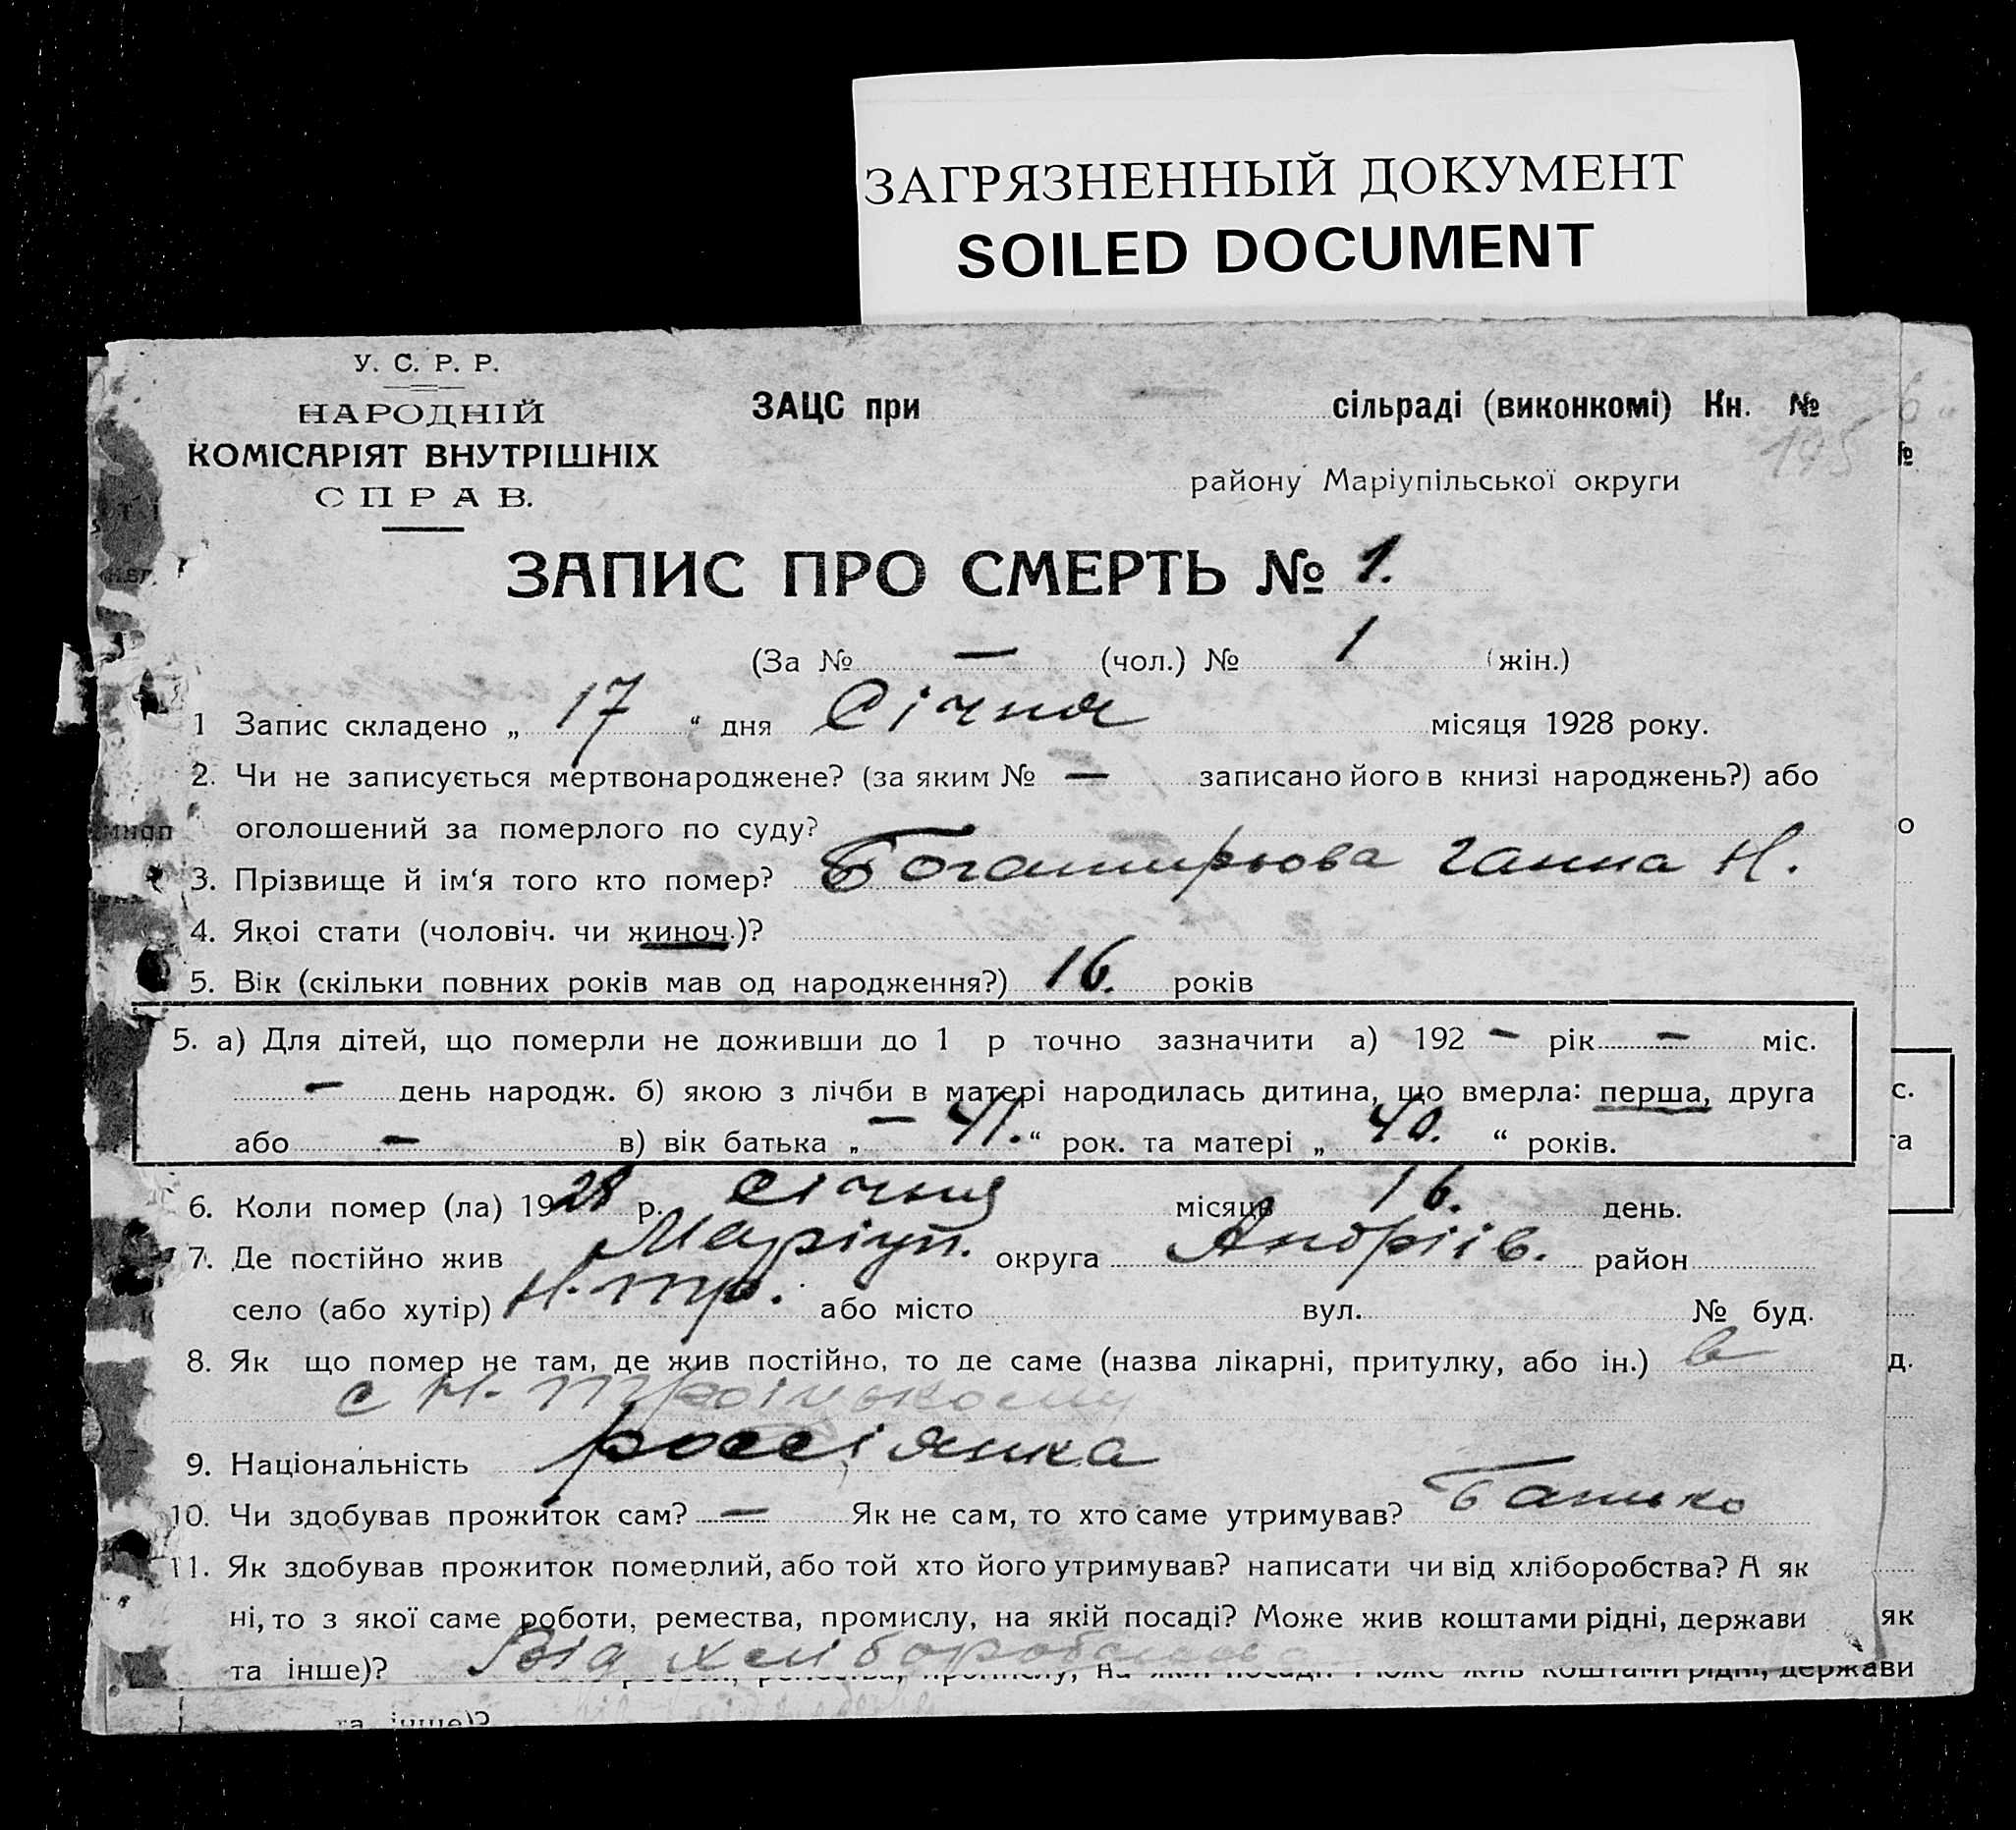 ЗАГРЯЗНЕННЫЙ ДОКУМЕНТ
SOILED DOCUMENT
У. С. Р. Р.
НАРОДНІЙ
КОМІСАРІЯТ ВНУТРІШНІХ
СПРАВ.
ЗАЦС при сільраді (виконкомі) Кн. №
195
району Маріупільської округи
ЗАПИС ПРО СМЕРТЬ № 1.
(За № — (чол.) № 1 (жін.)
1 Запис складено „ 17 “ дня Січня місяця 1928 року.
2. Чи не записується мертвонароджене? (за яким № — записано його в книзі народжень?) або
оголошений за померлого по суду?
3. Прізвище й ім‘я того кто помер? Богатирьова Ганна Н.
4. Якоі стати (чоловіч. чи жиноч.)?
5. Вік (скільки повних років мав од народження?) 16. років
5. а) Для дітей, що померли не доживши до 1 р точно зазначити а) 192 — рік — міс.
— день народж. б) якою з лічби в матері народилась дитина, що вмерла: перша, друга
або — в) вік батька „ — 41. “ рок. та матері „ 40. “ років.
6. Коли помер (ла) 1928 р. Січня місяця 16. день.
7. Де постійно жив Маріуп. округа Андріїв. район
село (або хутір) Н. Тр. або місто вул. № буд.
8. Як що помер не там, де жив постійно, то де саме (назва лікарні, притулку, або ін.) в
с Н-Троіцькому
9. Національність россіянка
10. Чи здобував прожиток сам? — Як не сам, то хто саме утримував? Батько
11. Як здобував прожиток померлий, або той хто його утримував? написати чи від хліборобства? А як
ні, то з якої саме роботи, ремества, промислу, на якій посаді? Може жив коштами рідні, держави
та інше)? Від хліборобства